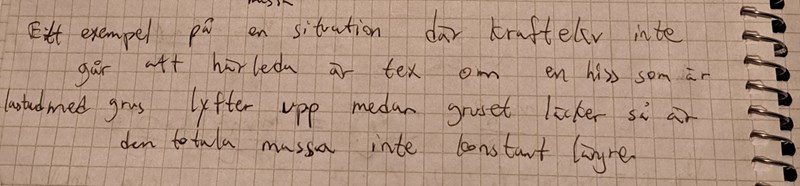 Ett exempel på en situation där kraftekv inte
går att härleda är tex om en hiss som är
lastad med grus lyfter upp medan gruset läcker så är
den totala massa inte konstant längre